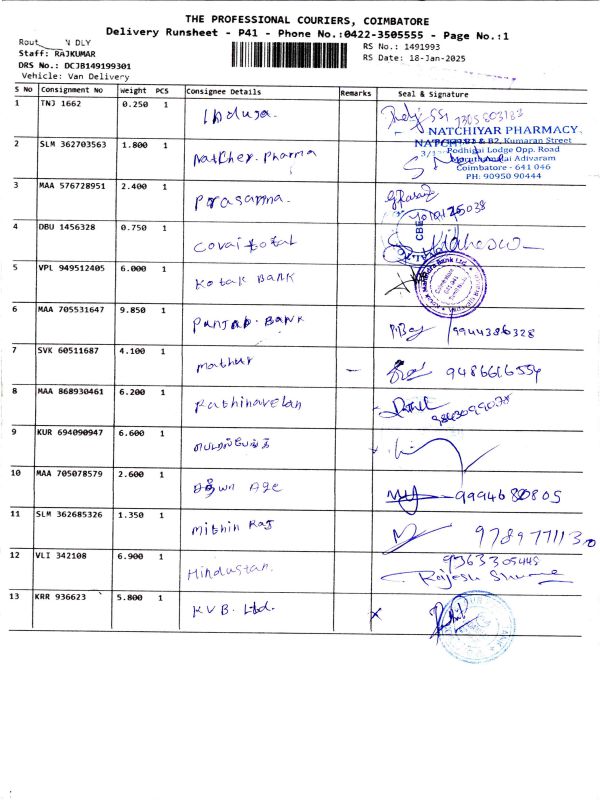 THE PROFESSIONAL COURIERS, COIMBATORE
Delivery Runsheet - P41 - Phone No.:0422-3505555 - Page No.:1
Rout N DLY
Staff: RAJKUMAR
DRS No.: DCJB149199301
Vehicle: Van Delivery
RS No.: 1491993
RS Date: 18-Jan-2025
S No Consignment No Weight PCS Consignee Details Remarks Seal & Signature
1 TNJ 1662 0.250 1 Induja.
NATCHIYAR PHARMACY
Kumaran Street
Podhigai Lodge Opp. Road
Maruthamalai Adivaram
Coimbatore - 641 046
PH: 90950 90444
2 SLM 362703563 1.800 1 Natcher. Pharma
3 MAA 576728951 2.400 1 Prasanna.
4 DBU 1456328 0.750 1 Covai
CBE
5 VPL 949512405 6.000 1 Kotak BANK
6 MAA 705531647 9.850 1 Punjab. BANK 9944386328
7 SVK 60511687 4.100 1 mathur — 9486616554
8 MAA 868930461 6.200 1 Rathinavelan
9 KUR 694090947 6.600 1
10 MAA 705078579 2.600 1 Age 9994680805
11 SLM 362685326 1.350 1 mithin Raj
12 VLI 342108 6.900 1 Hindustan. 9363305448
Rajesh
13 KRR 936623 5.800 1 KVB. Ltd. x